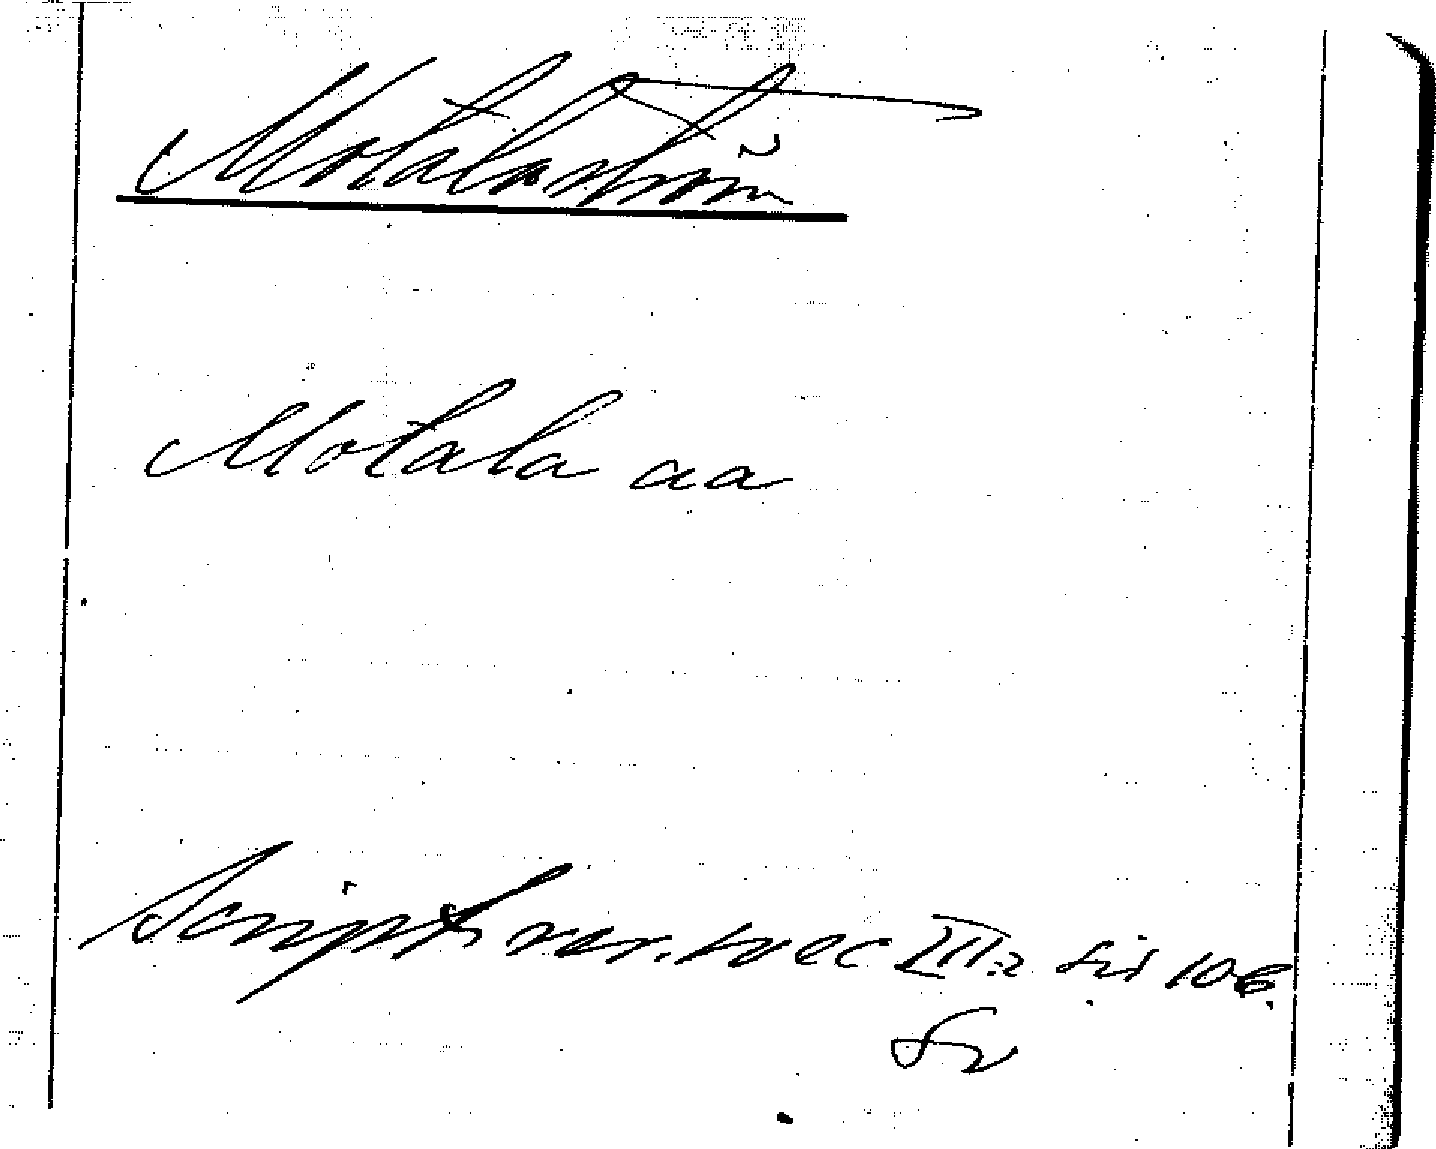 Motalaström
Motala aa
Script. rer. svec III:2 sid 106.
Sv